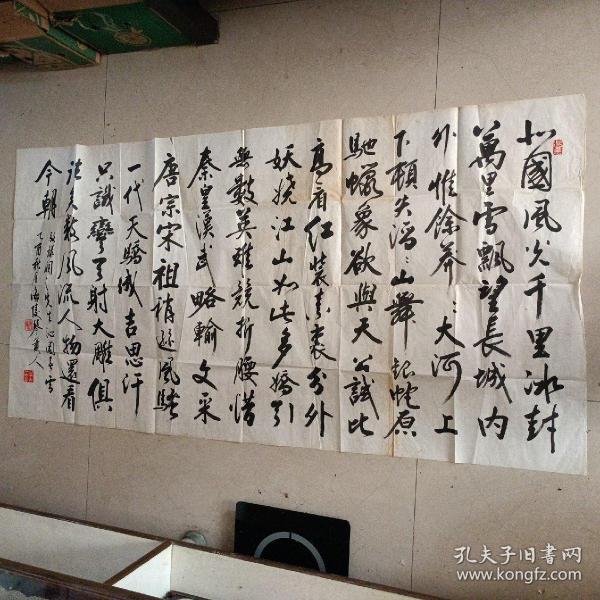 北國風光千里冰封
萬里雪飄望長城內
外惟餘莽〻大河上
下頓失滔〻山舞銀蛇原
馳蠟象欲與天公試比
高看紅裝素裹分外
妖嬈江山如此多嬌引
無數英雄競折腰惜
秦皇漢武略輸文采
唐宗宋祖稍遜風騷
一代天驕成吉思汗
只識彎弓射大雕俱
往矣數風流人物還看
今朝
先生沁園春雪
乙酉秋月
孔夫子旧書网
www.kongfz.com